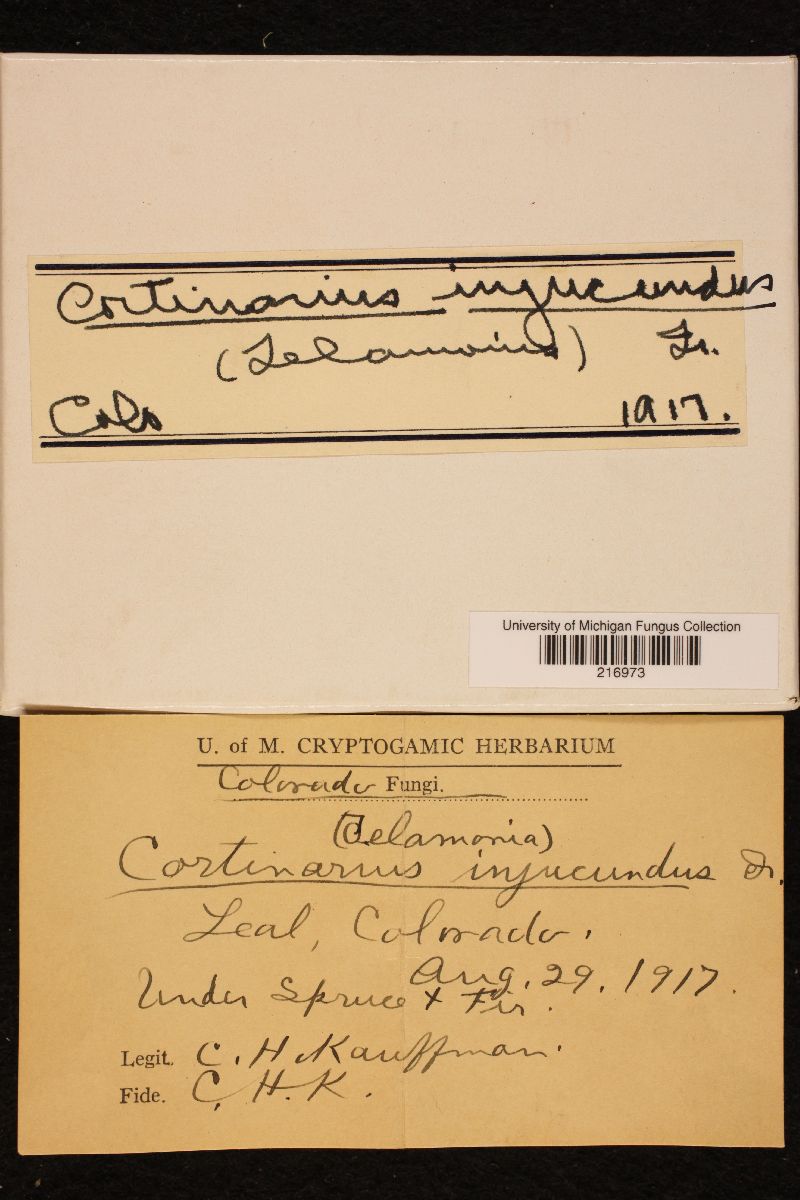 Cortinarius injucundus
(Telamonia) Fr.
Colo 1917.
University of Michigan Fungus Collection
216973
U. of M. CRYPTOGAMIC HERBARIUM
Colorado Fungi.
(Telamonia)
Cortinarius injucundus Fr.
Leal, Colorado.
Aug. 29. 1917.
Under Spruce + Fir.
Legit. C. H. Kauffman.
Fide. C. H. K.